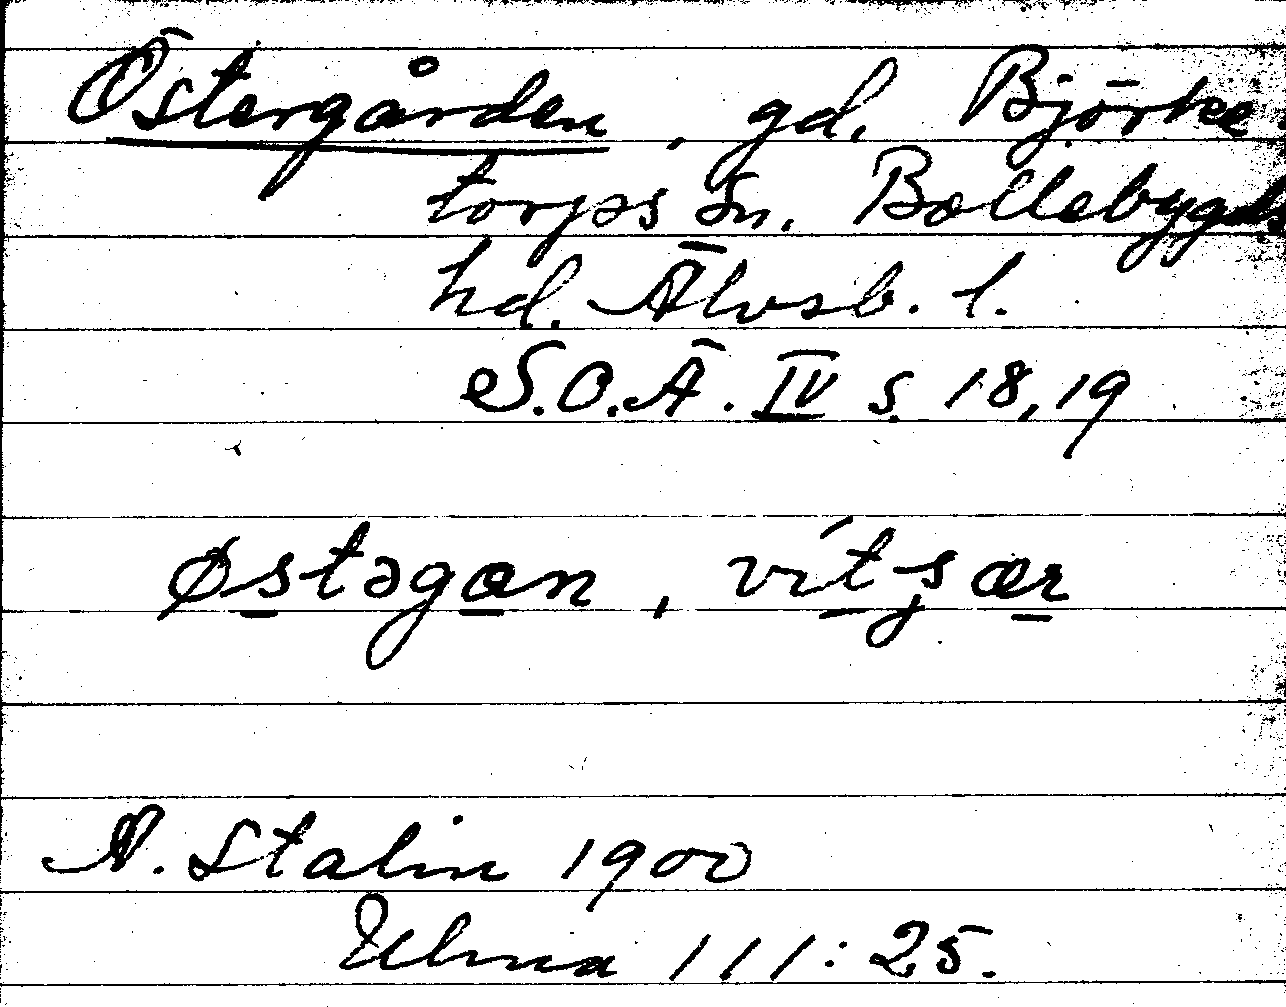 Östergården, gd. Björke
torps sn. Bollebygds
hd. Älvsb. l.
S.O.Ä. IV s. 18, 19
østəgan, vítsær
N. Stalin 1900
Ulma 111:25.